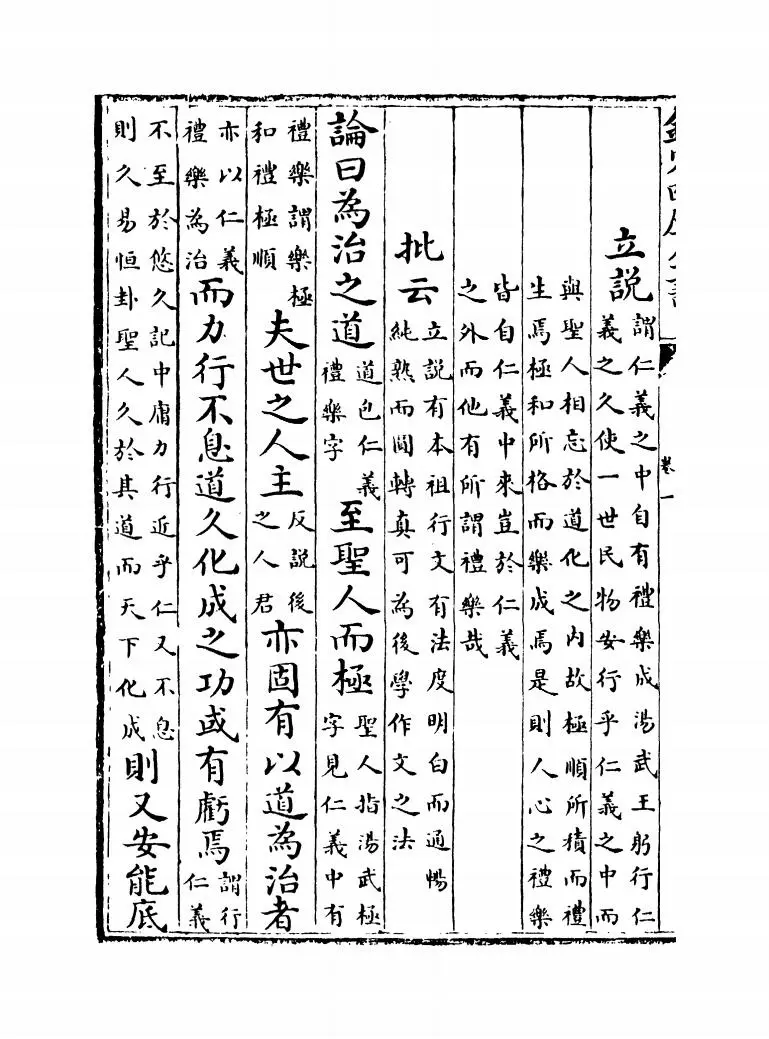 卷一
立說謂仁義之中自有禮樂成湯武王躬行仁義之久使一世民物安行乎仁義之中而
與聖人相忘於道化之内故極順所積而禮生焉極和所格而樂成焉是則人心之禮樂
皆自仁義中來豈於仁義之外而他有所謂禮樂哉
批云立說有本祖行文有法度明白而通暢純熟而圓轉真可為後學作文之法
論曰為治之道道包仁義禮樂字至聖人而極聖人指湯武極字見仁義中有
禮樂謂樂極和禮極順夫世之人主反說後之人君亦固有以道為治者
亦以仁義禮樂為治而力行不息道久化成之功或有虧焉謂行仁義
不至於悠久記中庸力行近乎仁又不息則久易恒卦聖人久於其道而天下化成則又安能底